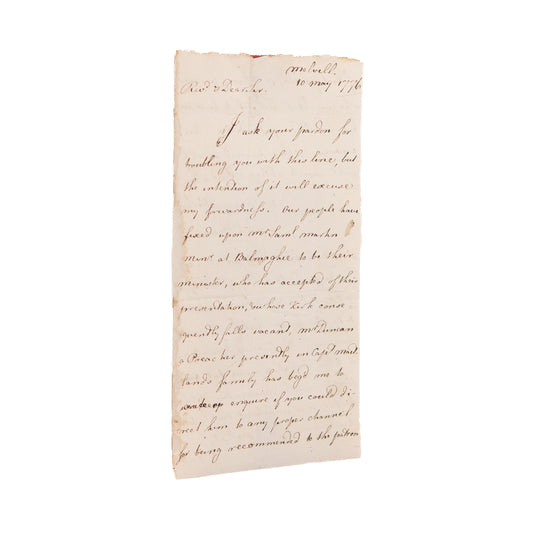 molvell.
10 may 1776
Revd & Dear Sir.
I ask your pardon for
troubling you with this line, but
the intention of it will excuse
my forwardness. Our people have
fixed upon Mr Saml martin
minr at Balmaghie to be their
minister, who has accepted of their
presentation, whose Kirk conse-
quently falls vacant, Mr Duncan
a Preacher presently in Capt mait
lands family has beg'd me to
enquire if you could di-
rect him to any proper channel
for being recommended to the patron